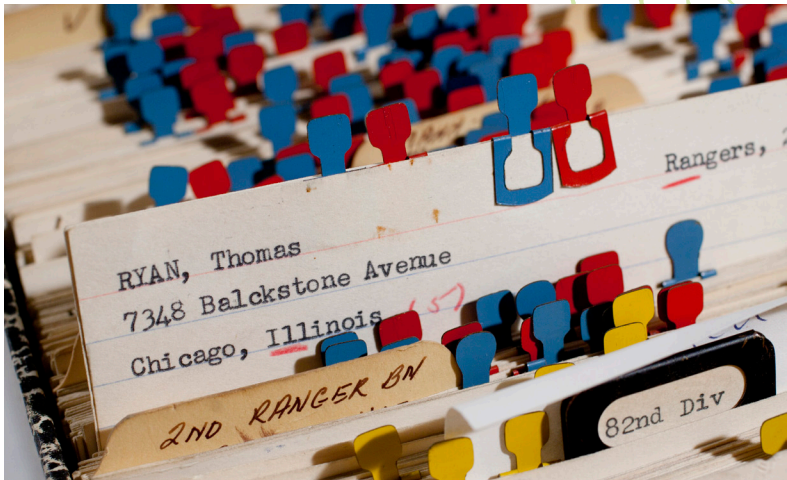 Rangers,
RYAN, Thomas
7348 Balckstone Avenue
Chicago, Illinois (5)
2ND RANGER BN
82nd Div